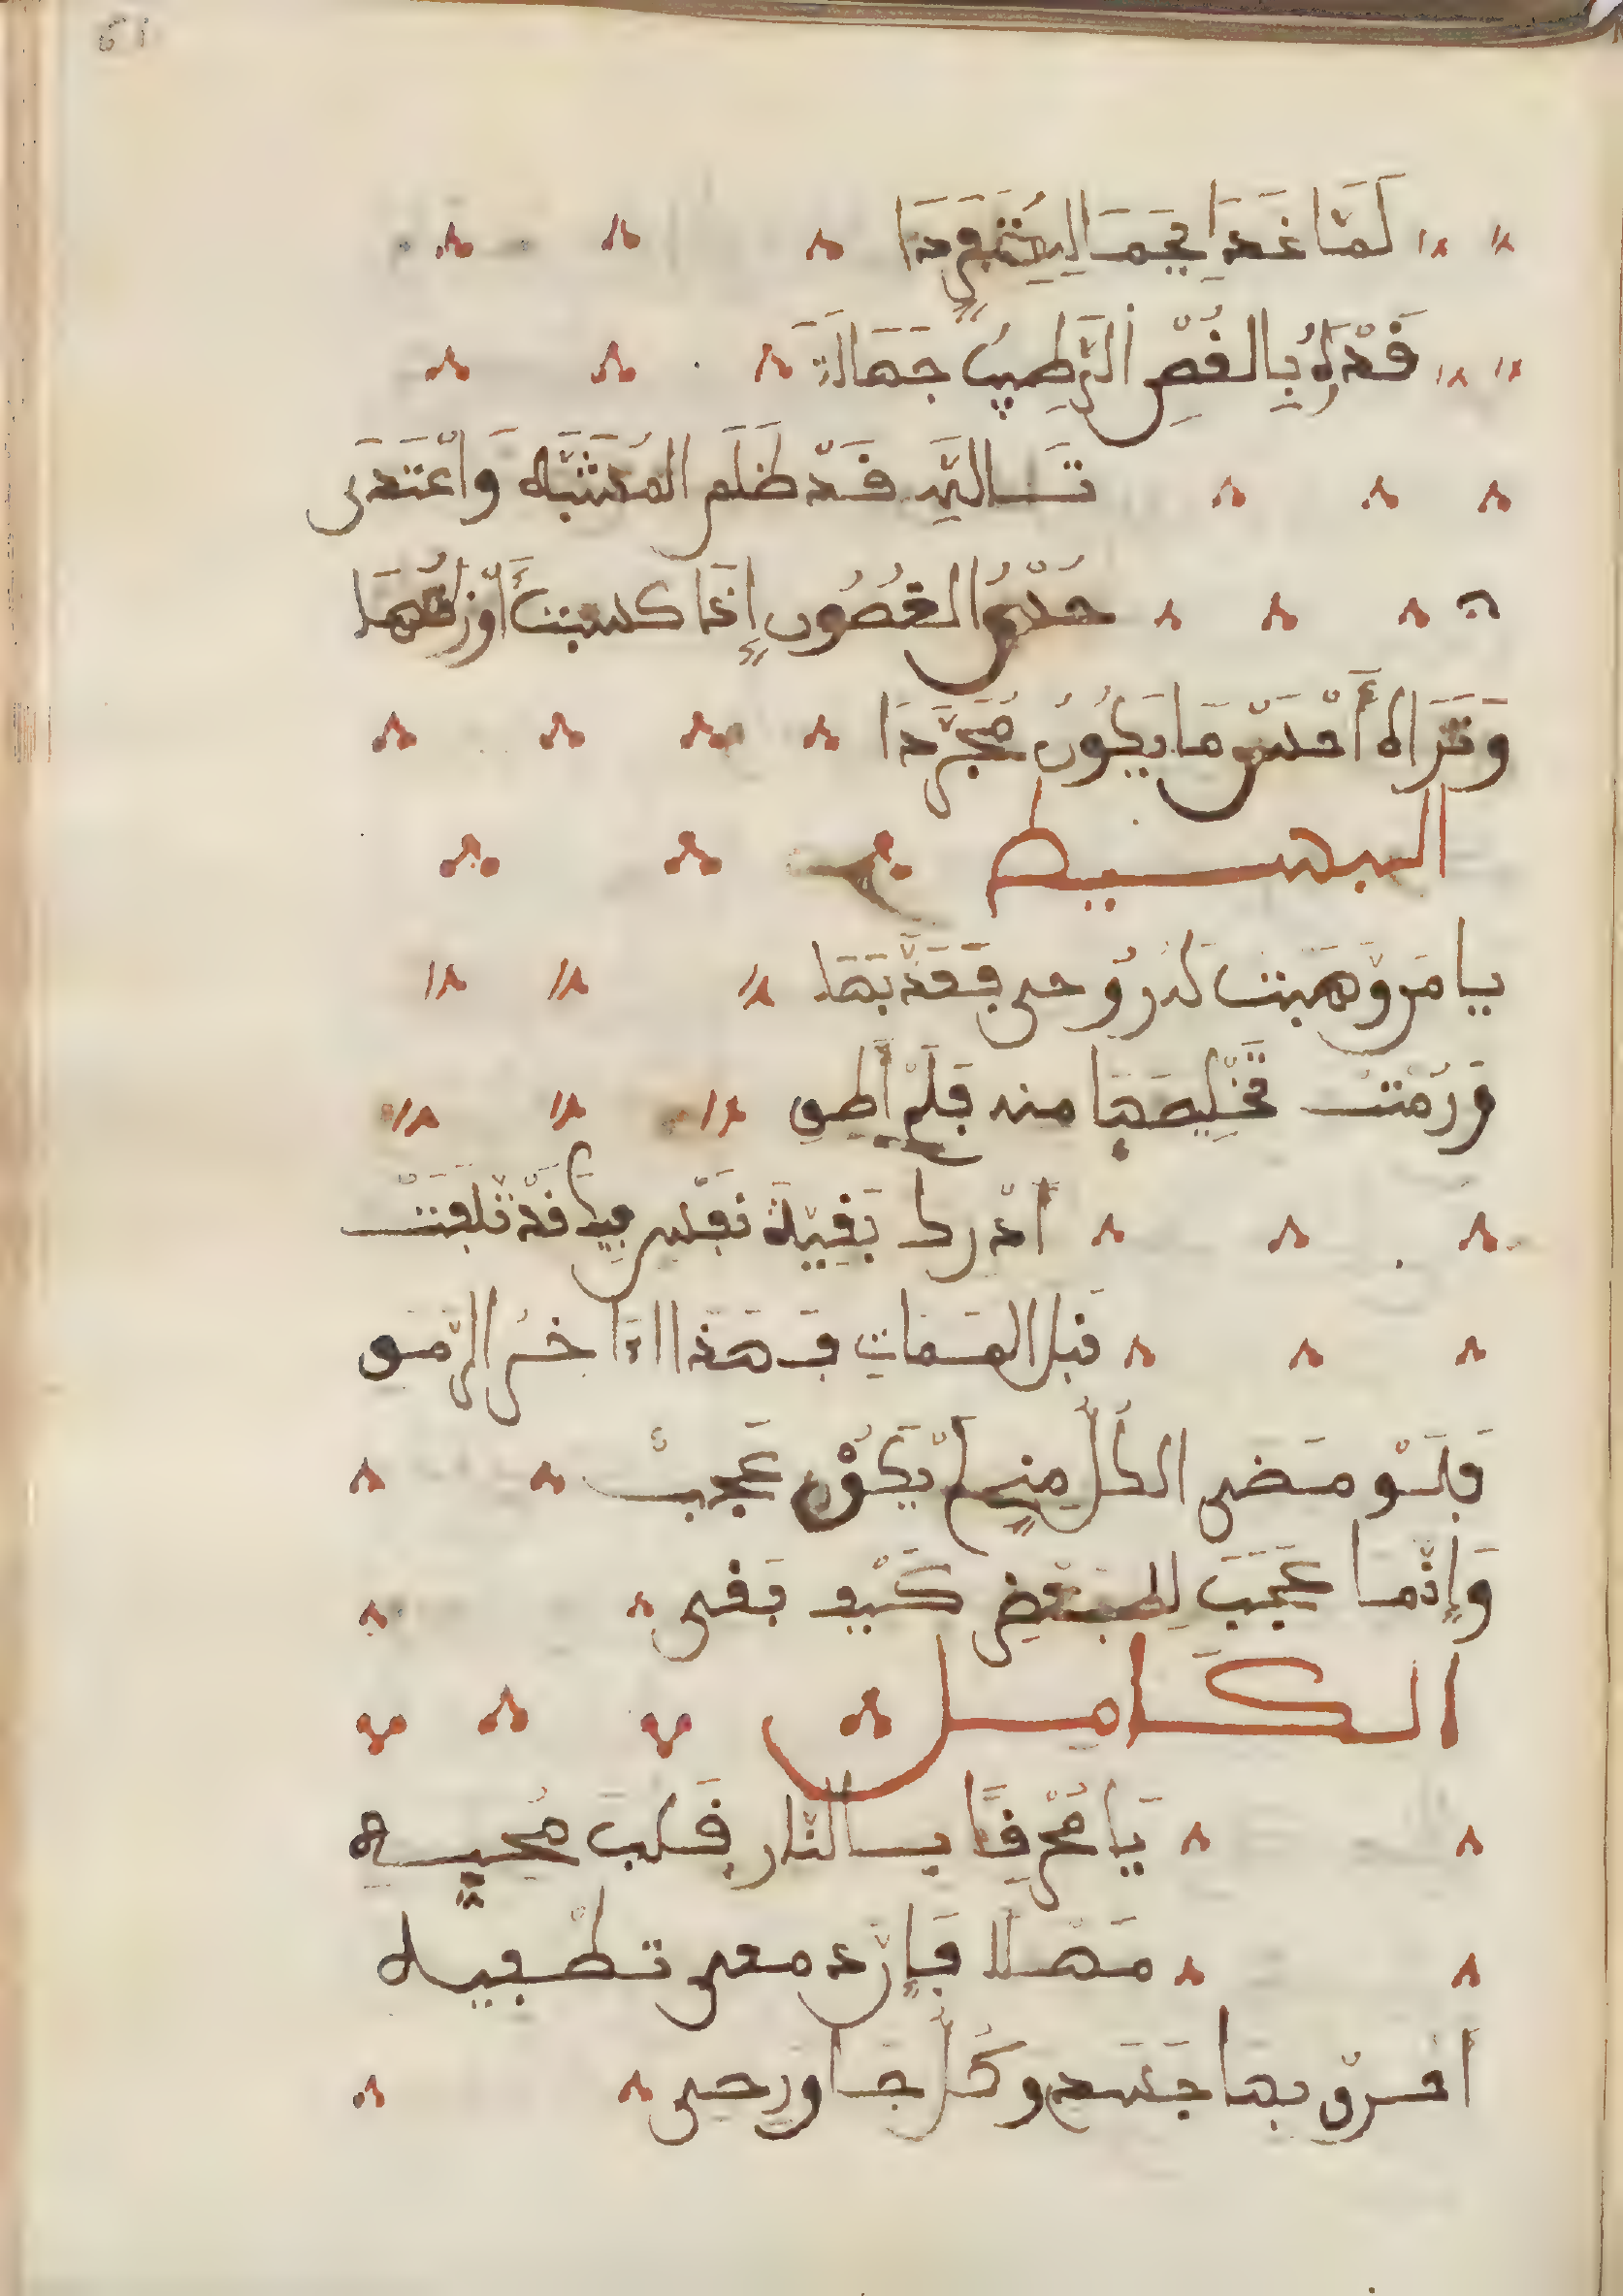 لَمَّا غَدَا بِجَمَالِهِ مُتَفَرِّدَا
قَدُّهُ بِالغُصْنِ الرَّطِيبِ جَهَالَة
تَاللَّهِ قَدْ ظَلَمَ المُشَبِّه وَاعْتَدَى
حُسْنُ الغُصُونِ إِذَا كسيت أَوْرَاقُهَا
وَتَرَاه أَحْسَن مَا يَكُونُ مُجَرَّدَا
البسيط
يا من وهبت له رُوحي فعَذَّبَهَا
وَرُمْت تَخْلِيصَهَا منه فَلَمْ أطق
ادْرك بَقِيَّةَ نَفْس فيك قَدْ تَلِفَتْ
قبل الممات فَهَذَا ءاخرُ الرمق
فَلَوْ مَضَى الكُلُّ مِنِّي لم يَكُنْ عَجب
وَإِنَّمَا عَجَبِي لِلبَعْضِ كَيْف بَقي
الكامل
يَا مُحْرِقًا بالنَّار قَلب مُحِبِّه
مَهْلا فَإِنَّ مدمعي تطْفيه
احرق بها جَسَدي وكُلّ جَوارحي